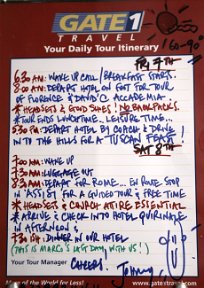 GATE 1
TRAVEL
Your Daily Tour Itinerary
60-90°
FRI 7TH
6:30 AM: WAKE UP CALL / BREAKFAST STARTS.
8:00 AM: DEPART HOTEL ON FOOT FOR TOUR
OF FLORENCE & DAVID @ ACCADEMIA
* HEADSETS & GOOD SHOES! NO BACKPACKS.
* TOUR ENDS LUNCHTIME... LEISURE TIME...
5:30 PM: DEPART HOTEL BY COACH & DRIVE
INTO THE HILLS FOR A TUSCAN FEAST
SAT 8TH
7:00 AM: WAKE UP
7:30 AM: LUGGAGE OUT
8:30 AM: DEPART FOR ROME... EN ROUTE STOP
IN 'ASSISI' FOR A GUIDED TOUR & FREE TIME
* HEADSETS & CHURCH ATTIRE ESSENTIAL
* ARRIVE & CHECK INTO HOTEL QUIRINALE
IN AFTERNOON &
7:30 PM: DINNER IN OUR HOTEL
(THIS IS MARCO'S LAST DAY WITH US!)
CHEERS!
Your Tour Manager
Johnny
More of the World for Less!
www.gate1travel.com